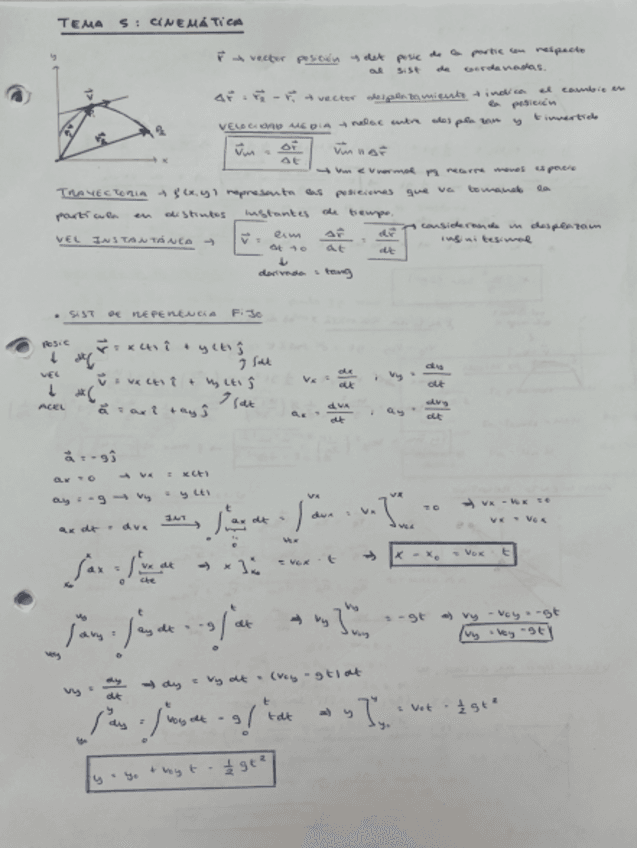 TEMA 5: CINEMÁTICA
y
x
r⃗ → vector posición → det posic de la partic con respecto
al sist de coordenadas.
Δr⃗ = r⃗₂ - r⃗₁ → vector desplazamiento → indica el cambio en
la posición
VELOCIDAD MEDIA → relac entre desplazam y t invertido
v⃗m = Δr⃗/Δt   v⃗m ∥ Δr⃗
→ vm < vnormal pq recorre menos espacio
TRAYECTORIA → f(x,y) representa las posiciones que va tomando la
partícula en distintos instantes de tiempo.
VEL INSTANTÁNEA → v⃗ = lim Δt→0 Δr⃗/Δt = dr⃗/dt → considerando un desplazam
infinitesimal
↓
derivada = tang
• SIST DE REFERENCIA FIJO
POSIC r⃗ = x(t) î + y(t) ĵ
↓ dt ∫dt
VEL v⃗ = vx(t) î + vy(t) ĵ   vx = dx/dt , vy = dy/dt
↓ dt ∫dt
ACEL a⃗ = ax î + ay ĵ   ax = dvx/dt , ay = dvy/dt
a⃗ = -g ĵ
ax = 0 → vx = x(t)
ay = -g → vy = y(t)
ax dt = dvx INT → ∫₀ᵗ ax dt = ∫ᵥ₀ₓᵛˣ dvx = vx ]ᵥ₀ₓᵛˣ = 0 ⇒ vx - v0x = 0
0
vx = v0x
∫ₓ₀ˣ dx = ∫₀ᵗ vx dt ⇒ x ]ₓ₀ˣ = v0x · t ⇒ x - x₀ = v0x · t
cte
∫ᵥ₀ᵧᵛʸ dvy = ∫₀ᵗ ay dt = -g ∫₀ᵗ dt ⇒ vy ]ᵥ₀ᵧᵛʸ = -gt ⇒ vy - v0y = -gt
vy = v0y - gt
vy = dy/dt ⇒ dy = vy dt = (v0y - gt) dt
∫ᵧ₀ʸ dy = ∫₀ᵗ v0y dt - g ∫₀ᵗ t dt ⇒ y ]ᵧ₀ʸ = v0t - 1/2 gt²
y = y₀ + v0y t - 1/2 gt²